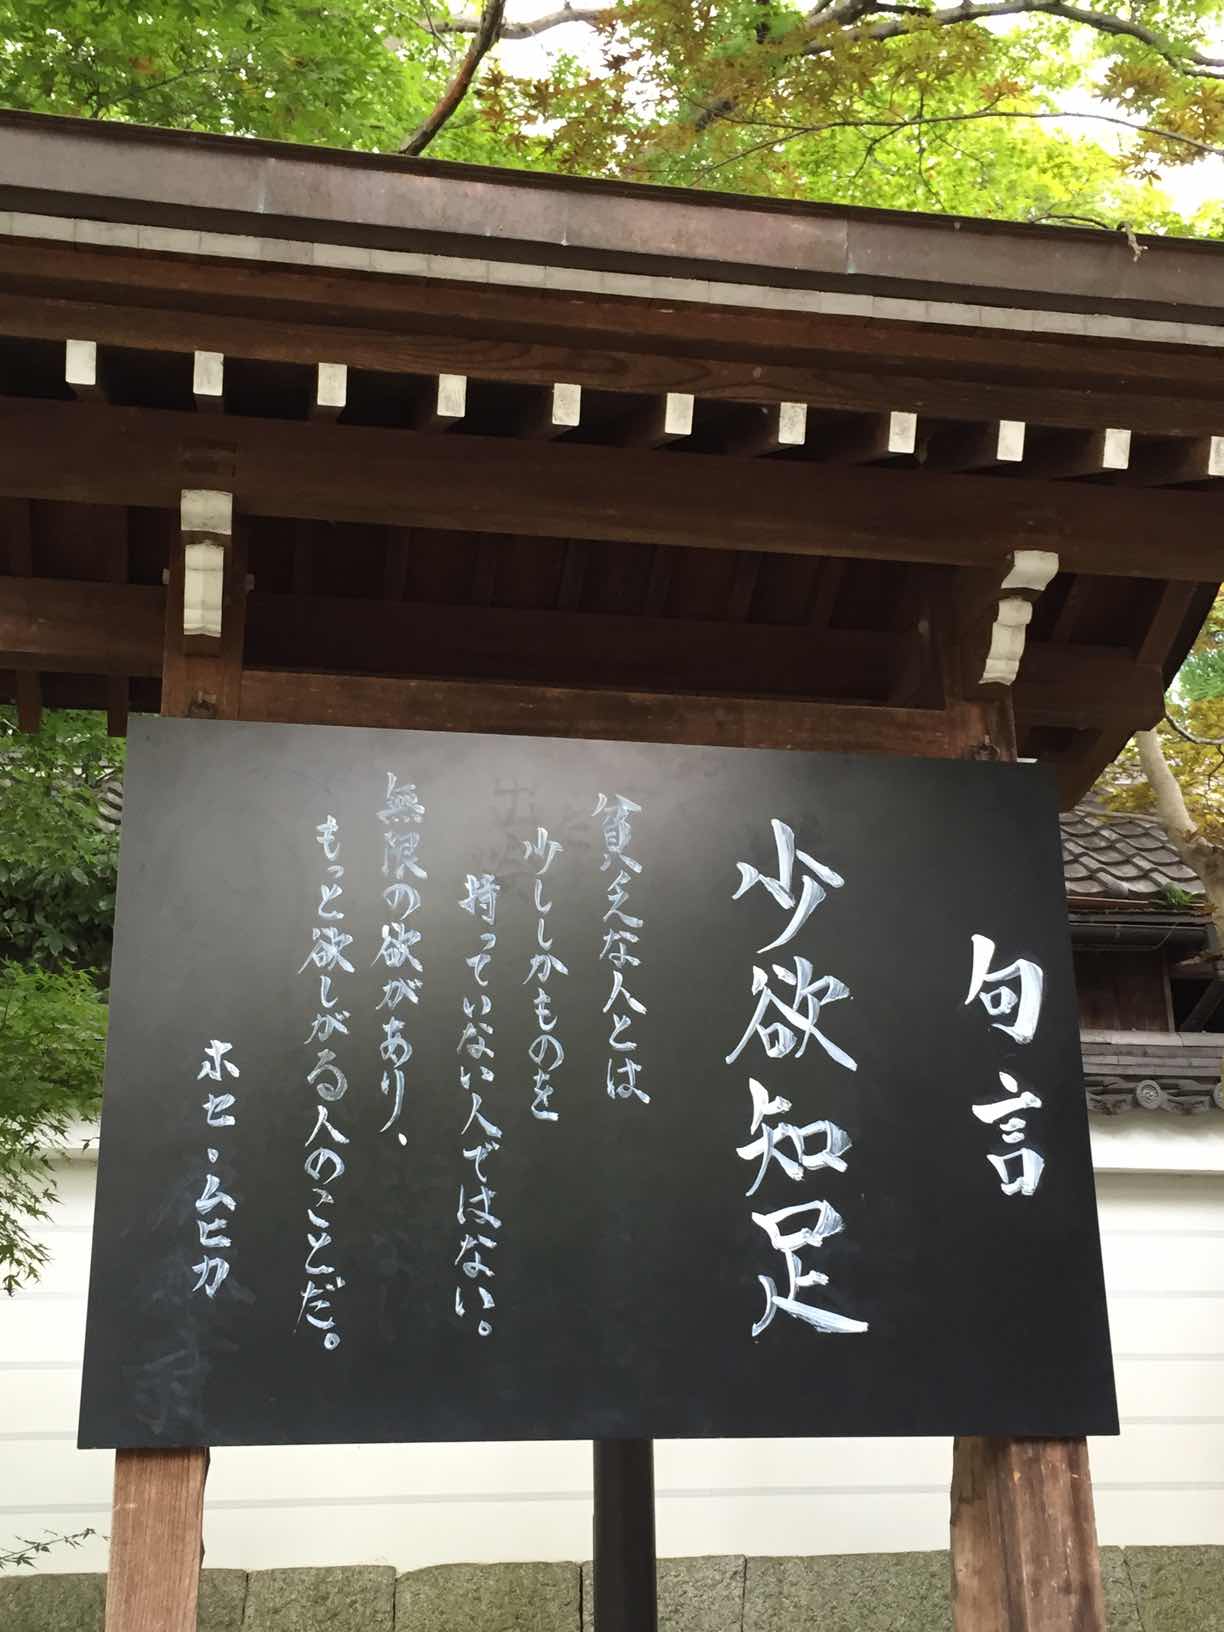 句言
少欲知足
貧乏な人とは
少ししかものを
持っていない人ではない。
無限の欲があり、
もっと欲しがる人のことだ。
ホセ・ムヒカ